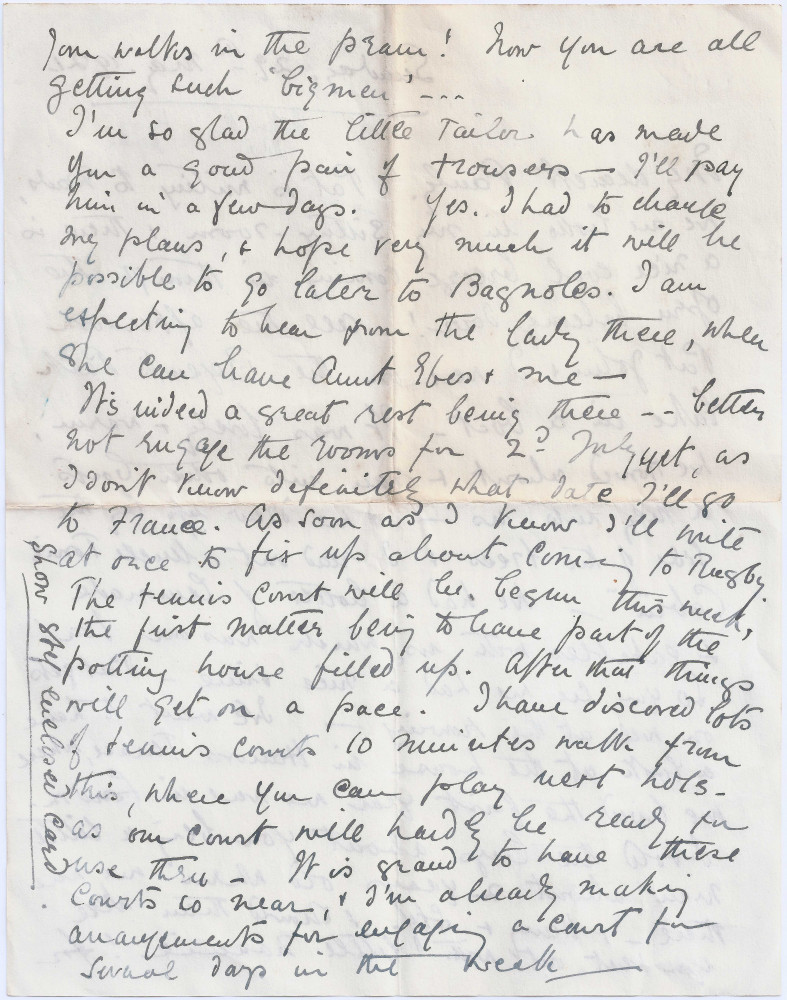 Tom walks in the pram! Now you are all
getting such 'big men' ---
I'm so glad the little Tailor has made
you a good pair of trousers — I'll pay
him in a few days. Yes. I had to change
my plans, & hope very much it will be
possible to go later to Bagnoles. I am
expecting to hear from the lady there, when
she can have Aunt & me —
It's indeed a great rest being there -- better
not engage the rooms for 2nd July yet, as
I don't know definitely what date I'll go
to France. As soon as I know I'll write
at once to fix up about coming to Rugby.
The tennis court will be begun this week,
the first matter being to have part of the
potting house filled up. After that things
will get on a pace. I have discovered lots
of tennis courts 10 minutes walk from
this, where you can play next hols -
as our court will hardly be ready for
use then - It is grand to have these
courts so near, & I'm already making
arrangements for engaging a court for
several days in the week —
Show enclosed card.